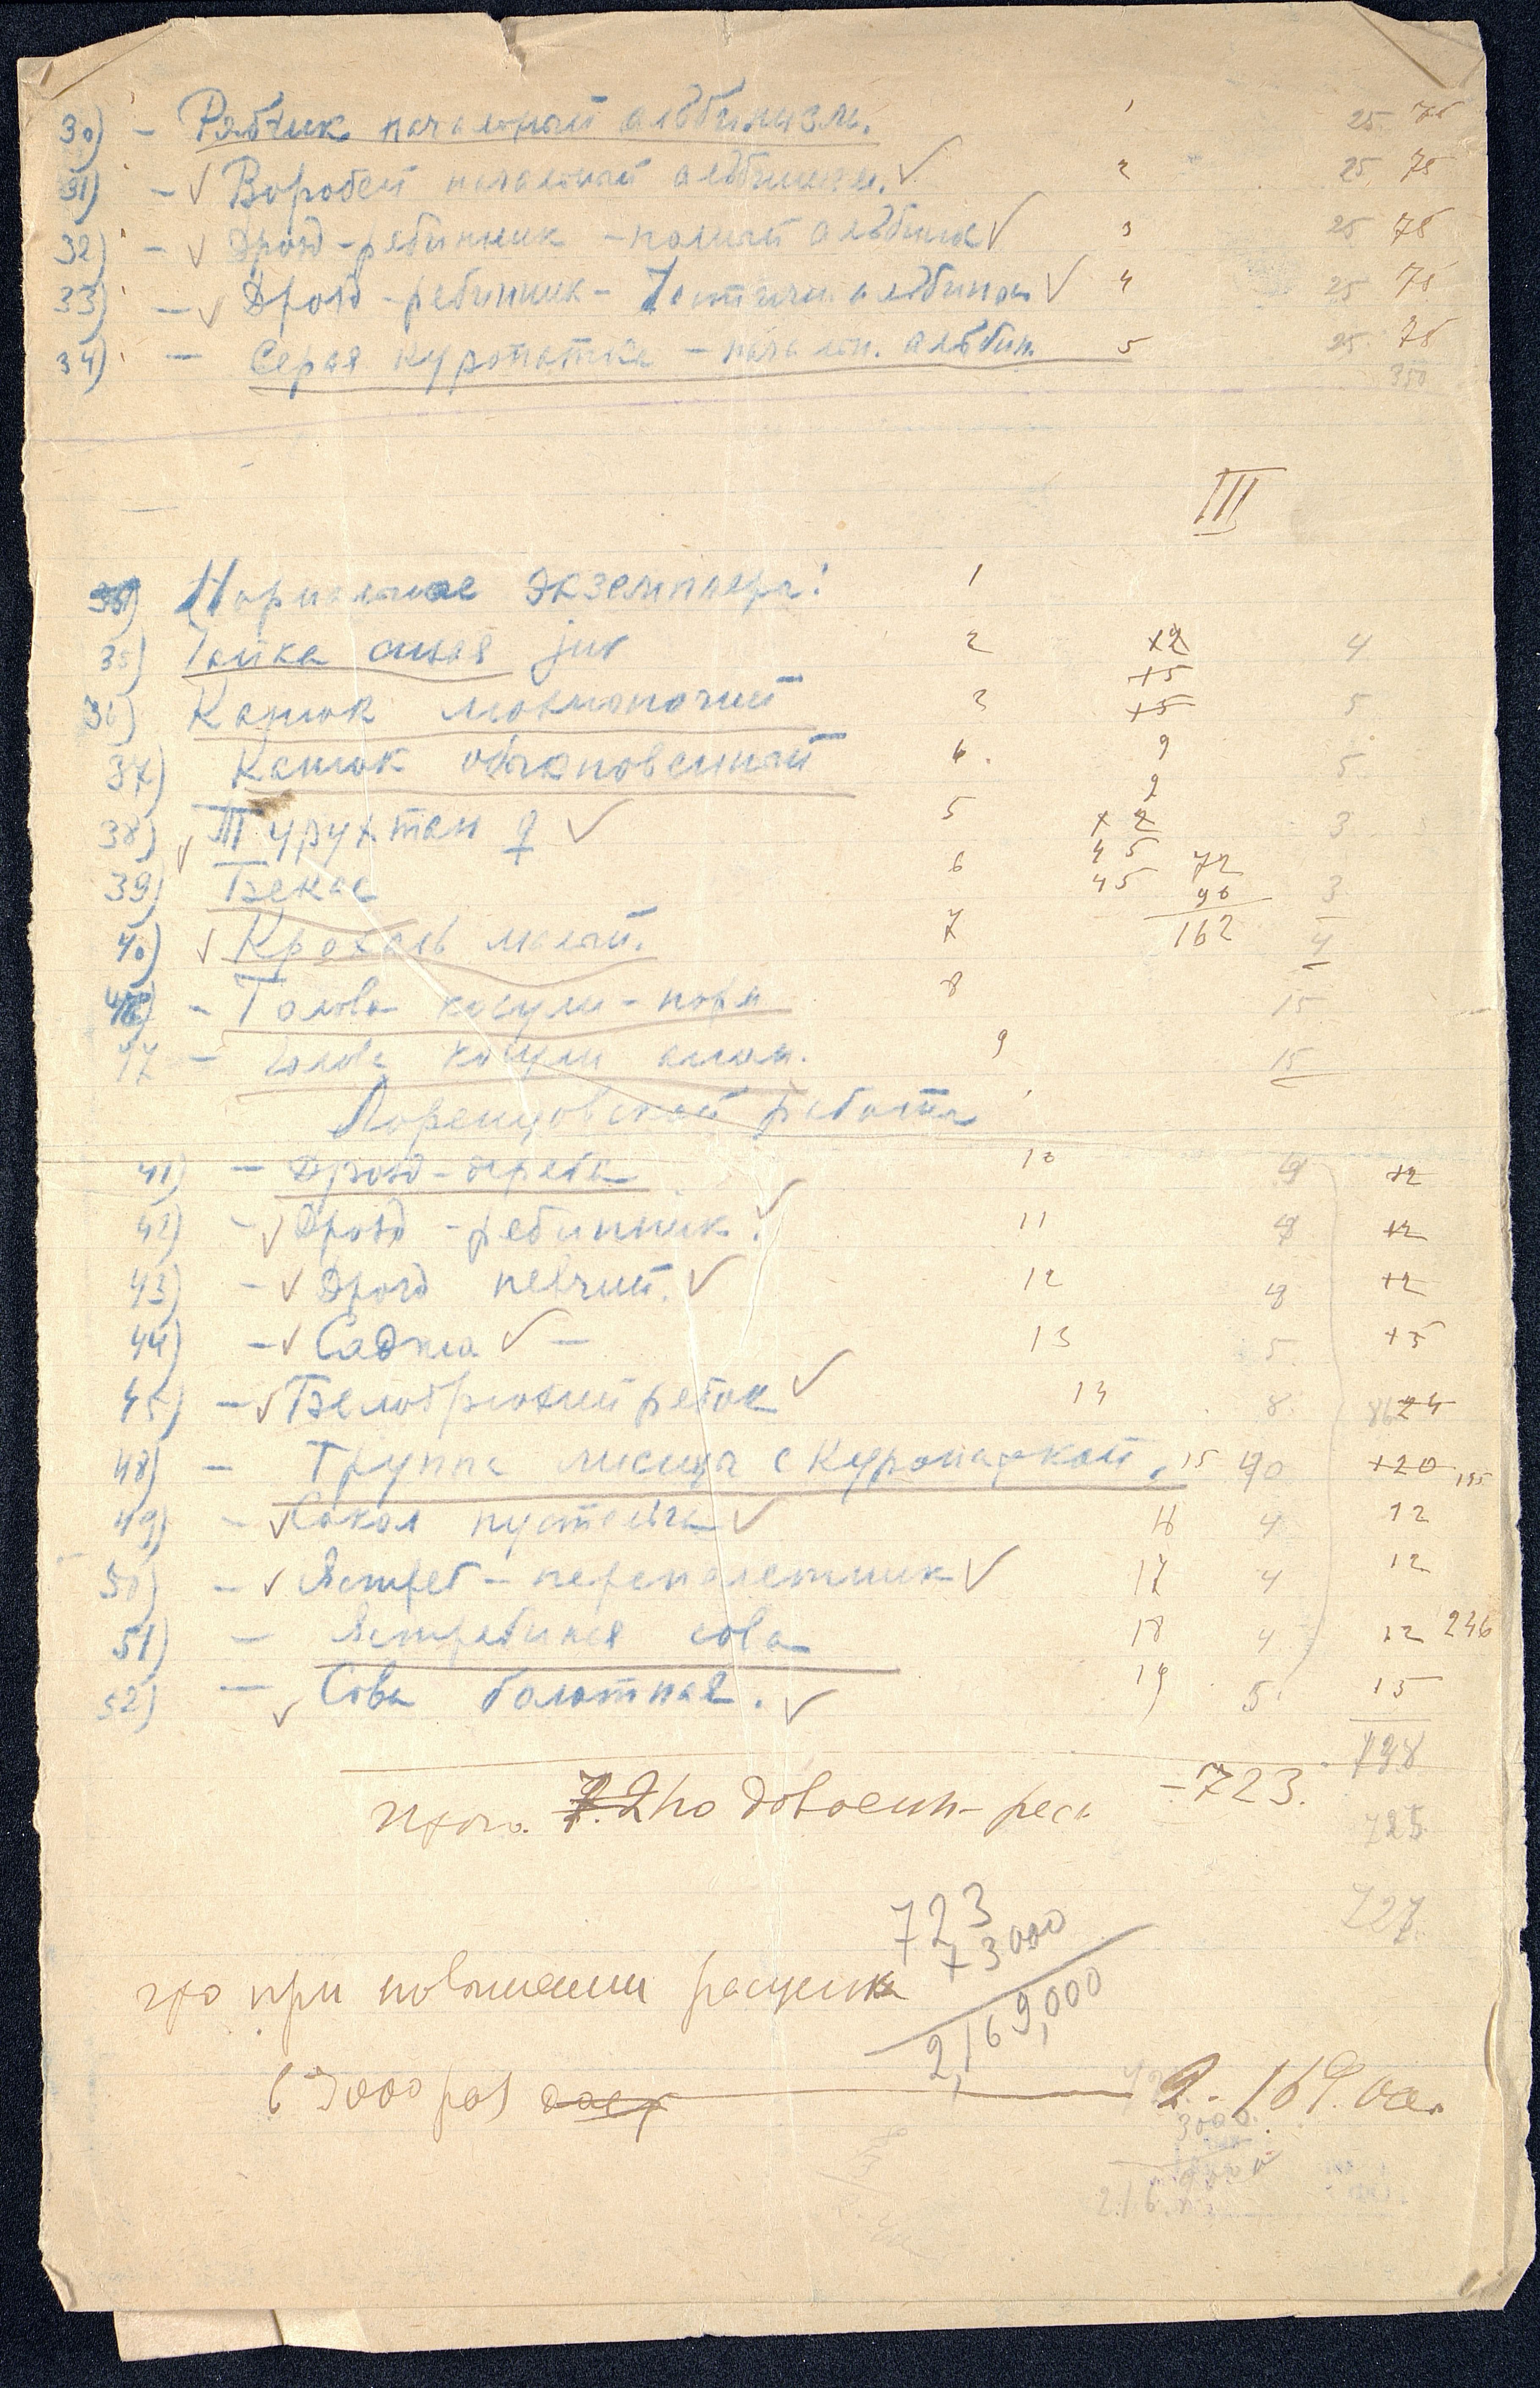 30) - Рябчик начальный альбинизм. 1 25 75
31) - √ Воробей начальный альбинизм. √ 2 25 75
32) - √ Дрозд-рябинник - полный альбинизм √ 3 25 75
33) - √ Дрозд-рябинник - Частичн альбинизм √ 4 25 75
34) - Серая куропатка - начальн. альбин. 5 25 75
350
III
Нормальные экземпляры: 1
35) Чайка сизая juv 2 +2 4
+5
36) Канюк мохноногий 3 +5 5
37) Канюк обыкновенный 4. 9 5
2
38) √ Турухтан ♀ √ 5 3
45 72
39) Бекас 6 45 90 3
40) √ Крохаль малый. 7 162 4
46) - Голова косули - норм 8 15
47 - Голова косули 9 15
Лоренцовской работы
41) - Дрозд-деряба 10 12
42) - √ Дрозд-рябинник. √ 11 12
43) - √ Дрозд певчий. √ 12 12
44) - √ Саджа √ - 13 5 15
45) - √ Белобрюхий рябок √ 14 8 24
48) - Группа лисица с куропаткой. 15 40 120 195
49) - √ Сокол пустельга √ 16 4 12
50) - √ Ястреб-перепелятник √ 17 4 12
51) - Ястребиная сова 18 4 12 246
52) - √ Сова болотная. √ 19 5 15
798
Итого по довоен - 723.
725
723 727
×3000
что при повышении расценки
2,169,000
в 3000 раз 2.169.000.
3000